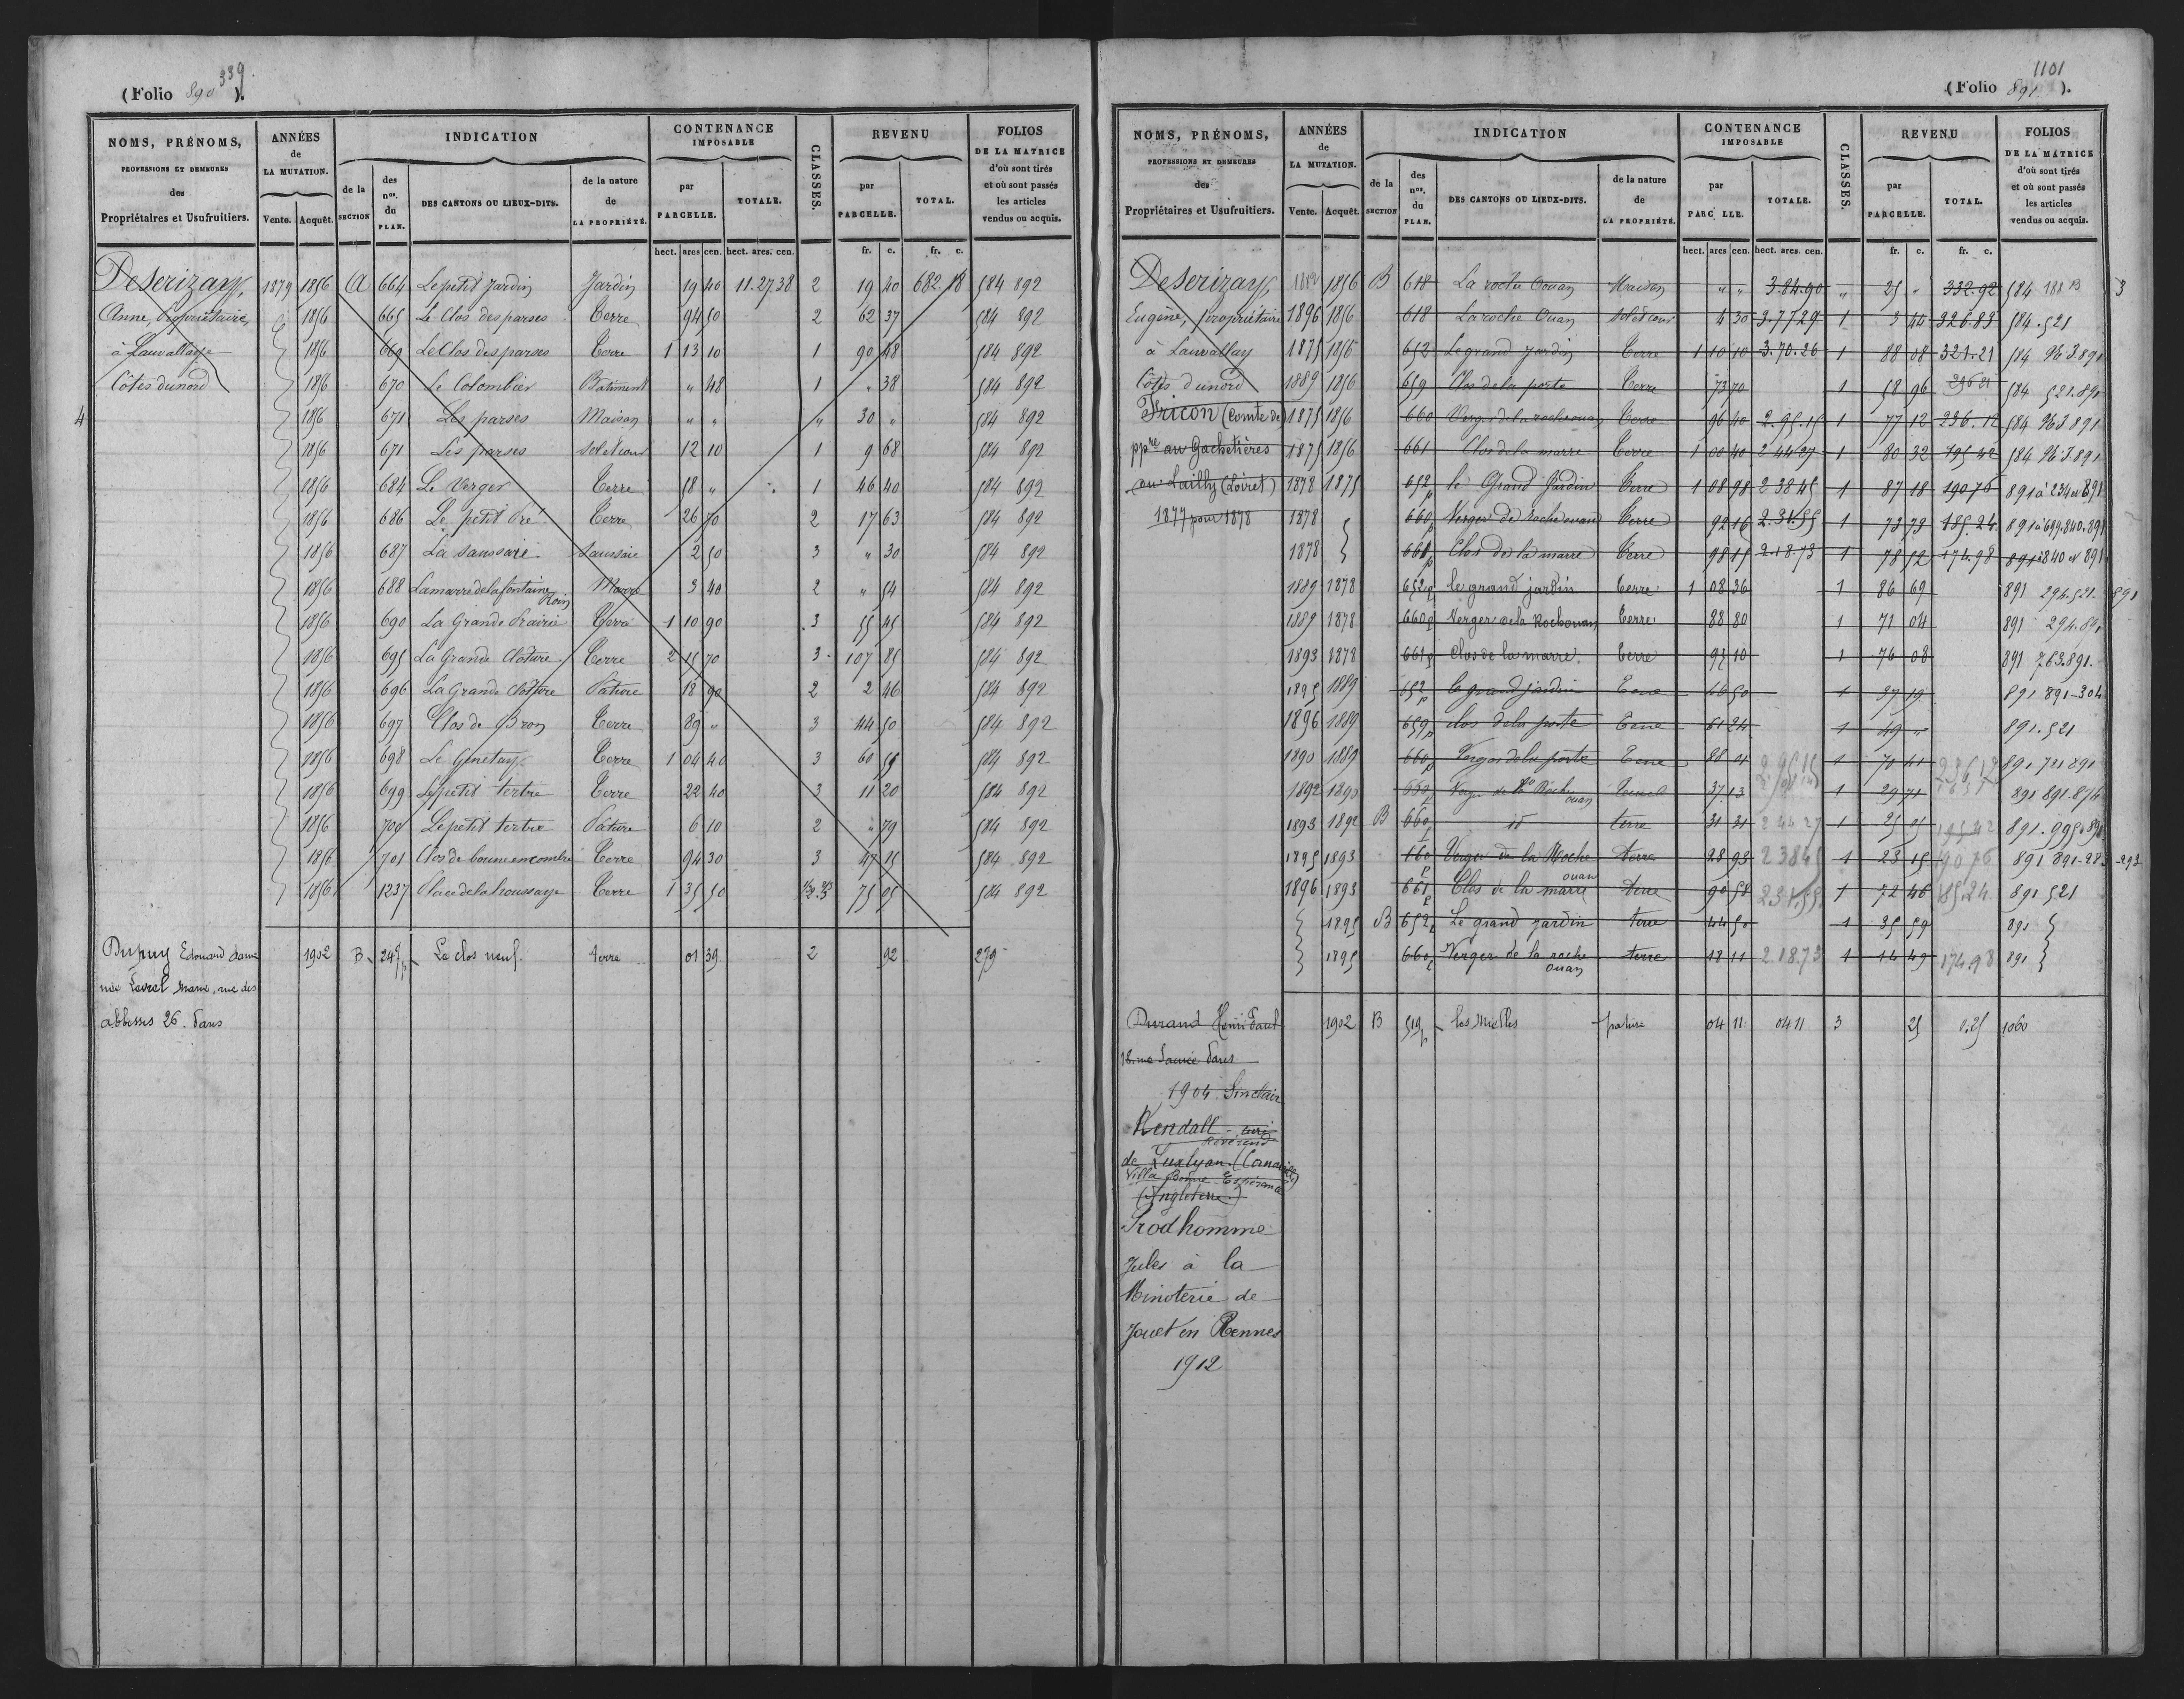 339
(Folio 890 ).
NOMS, PRÉNOMS,
PROFESSIONS ET DEMEURES
des
Propriétaires et Usufruitiers.
ANNÉES
de
LA MUTATION.
Vente. Acquêt.
INDICATION
de la
SECTION
des
nos.
du
PLAN.
DES CANTONS OU LIEUX-DITS.
de la nature
de
LA PROPRIÉTÉ.
CONTENANCE
IMPOSABLE
par
PARCELLE.
TOTALE.
CLASSES.
REVENU
par
PARCELLE.
TOTAL.
FOLIOS
DE LA MATRICE
d'où sont tirés
et où sont passés
les articles
vendus ou acquis.
hect. ares cen. hect. ares. cen. fr. c. fr. c.
Deserizay, 1879 1856 A 664 Le petit Jardin Jardin 19 40 11.27.38 2 19 40 682.18 584 892
Anne, Propriétaire, 1856 665 Le Clos des parses Terre 94 50 2 62 37 584 892
à Lanvallay 1856 669 Le Clos des parses Terre 1 13 10 1 90 48 584 892
Côtes du nord 1856 670 Le Colombier Bâtiment " 48 1 " 38 584 892
4 1856 671 Les parses Maison " " " 30 " 584 892
1856 671 Les parses Sol et cour 12 10 1 9 68 584 892
1856 684 Le Verger Terre 58 " 1 46 40 584 892
1856 686 Le petit Pré Terre 26 70 2 17 63 584 892
1856 687 La Saussaie Saussaie 2 50 3 " 30 584 892
1856 688 La marre de la fontaine Roin Marre 3 40 2 " 54 584 892
1856 690 La Grande Prairie Terre 1 10 90 3 55 45 584 892
1856 695 La Grande Cloture Terre 2 15 70 3 107 85 584 892
1856 696 La Grande Cloture Pature 18 90 2 2 46 584 892
1856 697 Clos de Bron Terre 89 " 3 44 50 584 892
1856 698 Le Genetay Terre 1 04 40 3 60 55 584 892
1856 699 Le petit tertre Terre 22 40 3 11 20 584 892
1856 700 Le petit tertre Pâture 6 10 2 " 79 584 892
1856 701 Clos de bonne encombre Terre 94 30 3 47 15 584 892
1856 1237 Place de la houssaye Terre 1 35 50 75 05 584 892
Dupuy Edouard dame 1902 B 247p Le clos neuf terre 01 39 2 92 279
née Levrel Marie, rue des
abbesses 26. Paris
1101
(Folio 891 ).
NOMS, PRÉNOMS,
PROFESSIONS ET DEMEURES
des
Propriétaires et Usufruitiers.
ANNÉES
de
LA MUTATION.
Vente. Acquêt.
INDICATION
de la
SECTION
des
nos.
du
PLAN.
DES CANTONS OU LIEUX-DITS.
de la nature
de
LA PROPRIÉTÉ.
CONTENANCE
IMPOSABLE
par
PARC LLE.
TOTALE.
CLASSES.
REVENU
par
PARCELLE.
TOTAL.
FOLIOS
DE LA MATRICE
d'où sont tirés
et où sont passés
les articles
vendus ou acquis.
hect. ares cen. hect. ares. cen. fr. c. fr. c.
Deserizay, 1856 B 618 La roche Ouan Maison " " 3.84.90 " 25 " 332.92 584 188 B 3
Eugène, propriétaire 1896 1856 618 La roche Ouan Sol et cour 4 30 3.77.29 1 3 44 326.83 584.521
à Lanvallay 1875 1856 652 Le grand Jardin Terre 1 10 10 3.70.26 1 88 08 321.21 584 963.891
Côtes du nord 1889 1856 659 Clos de la porte Terre 73 70 1 58 96 584 521.891
Tricon (Comte de) 1875 1856 660 Verger de la roche ouan Terre 96 40 2.95.15 1 77 12 236.12 584 963 891
ppre au Gachetières 1875 1856 661 Clos de la marre Terre 1 00 40 2 44 27 1 80 32 195 42 584 963.891
ou Lailly (Loiret) 1878 1875 652p le Grand Jardin Terre 1 08 98 2 38 45 1 87 18 190 76 891 à 234 et 891
1877 pour 1878 1878 660p Verger de Roche ouan Terre 92 16 2.31.55 1 73 73 185.24 891 à 699.840.891
1878 661p Clos de la marre Terre 98 15 2.18.73 1 78 52 174.98 891 à 840 et 891
1889 1878 652p le grand jardin terre 1 08 36 1 86 69 891 294.521. 891
1889 1878 660p Verger de la Roche ouan Terre 88 80 1 71 04 891 294.891
1893 1878 661p Clos de la marre Terre 95 10 1 76 08 891 763.891.
1895 1889 652p le grand jardin Terre 46 50 1 37 19 891 891-304
1896 1889 659p clos de la porte Terre 61 24 1 49 " 891.521
1890 1889 660p Verger de la porte Terre 88 01 1 70 41 891 721 891
1892 1890 660p Verger de la Roche ouan 37 13 1 29 71 891 891.874
1893 1892 B 660p id terre 31 31 2 44 27 1 25 05 195 42 891.995.891
1895 1893 660p Verger de la Roche ouan terre 28 93 2 38 45 1 23 15 190 76 891 891-283-293
1896 1893 661p Clos de la marre terre 90 58 2 31.55 1 72 46 185.24 891 521
1895 B 652p Le grand jardin terre 44 50 1 35 59 891
1895 660p Verger de la roche ouan terre 18 11 2 18.73 1 14 49 174.98 891
Durand Henri Paul 1902 B 519p les Mielles pature 04 11 04 11 3 25 0.25 1060
18 rue Paris
1904. Sinclair
Kendall
Révérend
de Luxlyan (Cornouailles)
Villa Bonne-Espérance
(Angleterre)
Prod'homme
Jules à la
Minoterie de
Jouet en Rennes
1912